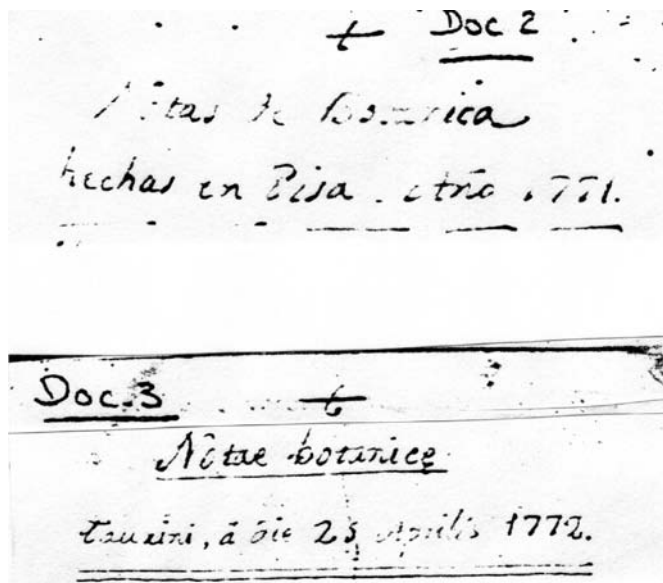 Doc 2
Notas de Botanica
hechas en Pisa. Año 1771.
Doc. 3
Notae botanicę
taurini, a die 25 Aprilis 1772.